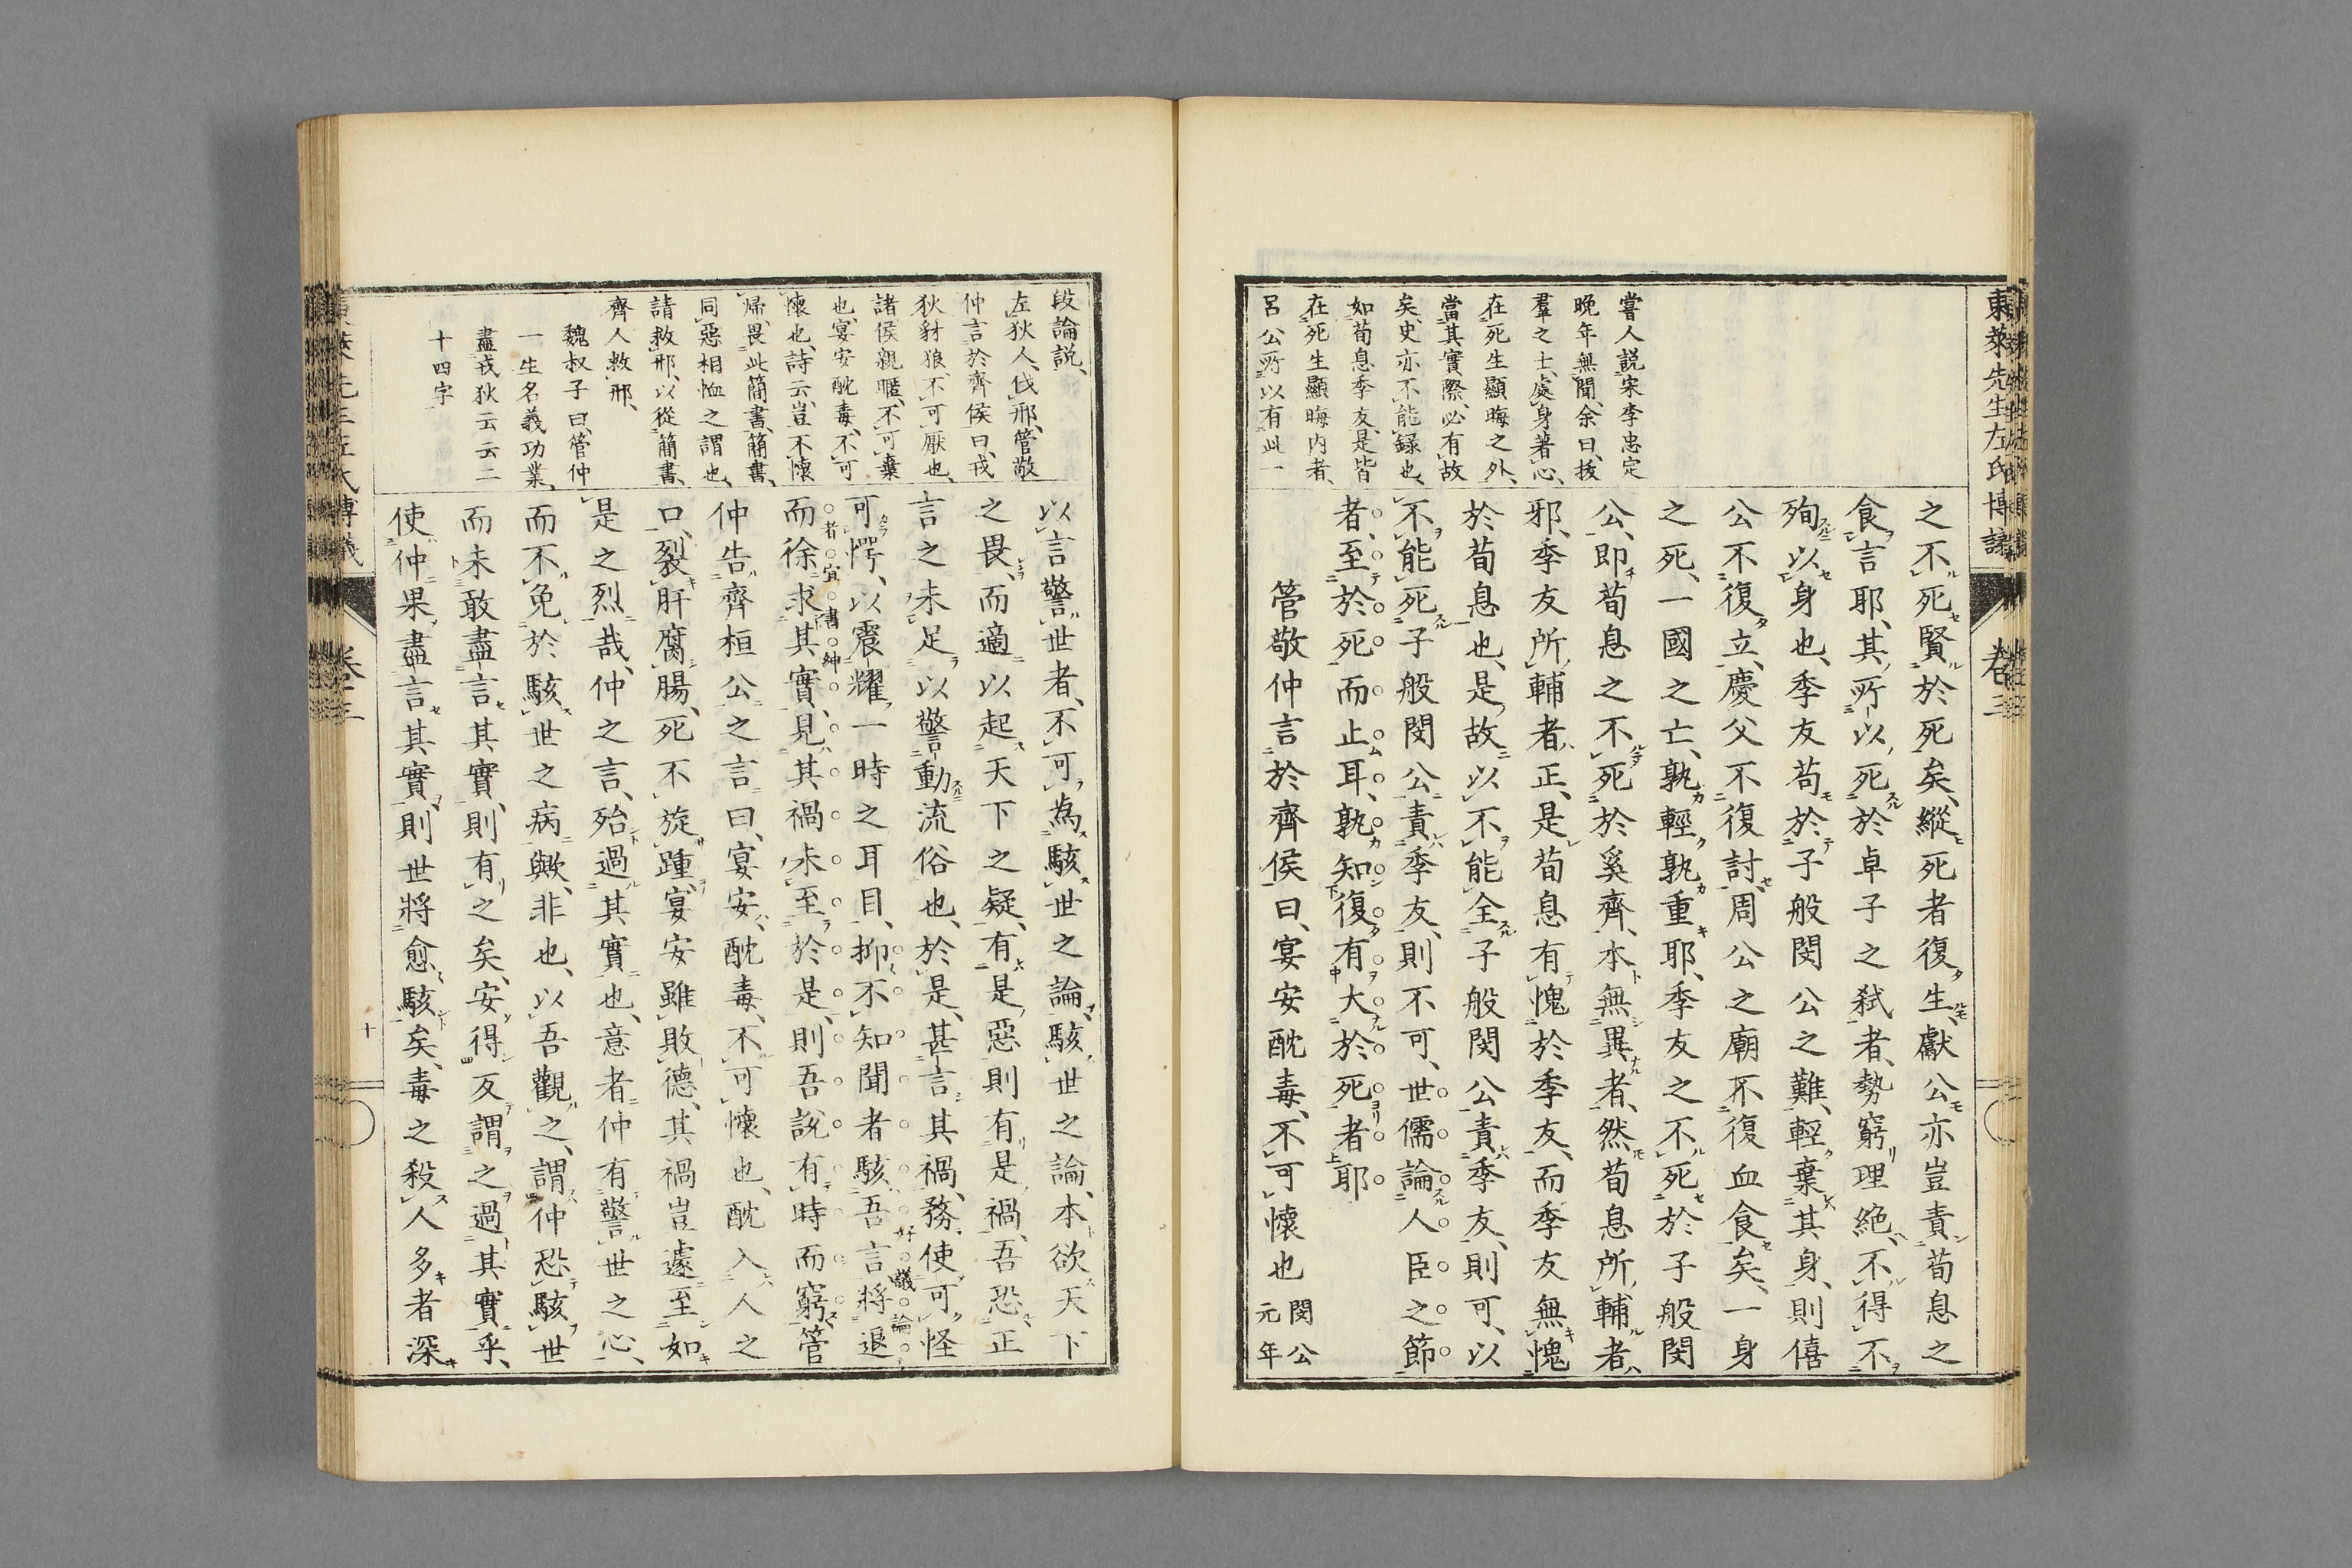 東萊先生左氏博議
卷三
嘗人説宋李忠定
晚年無聞、余曰、拔
羣之士、處身著心、
在死生顯晦之外、
當其實際、必有故
矣、史亦不能録也、
如荀息季友、是皆
在死生顯晦内者、
呂公所以有此一
之不死賢於死矣、縱死者復生、獻公亦豈責荀息之
食言耶、其所以死於卓子之弑者、勢窮理絶、不得不
殉以身也、季友苟於子般閔公之難、輕棄其身、則僖
公不復立、慶父不復討、周公之廟不復血食矣、一身
之死、一國之亡、孰輕孰重耶、季友之不死於子般閔
公、即荀息之不死於奚齊、本無異者、然荀息所輔者
邪、季友所輔者正、是荀息有愧於季友、而季友無愧
於荀息也、是故以不能全子般閔公責季友、則可、以
不能死子般閔公責季友、則不可、世儒論人臣之節
者、至於死而止耳、孰知復有大於死者耶
管敬仲言於齊侯曰、宴安酖毒、不可懷也 閔公元年
段論説、
左狄人伐邢、管敬
仲言於齊侯曰、戎
狄豺狼、不可厭也、
諸侯親暱、不可棄
也、宴安酖毒、不可
懷也、詩云、豈不懷
帰、畏此簡書、簡書、
同惡相恤之謂也、
請救邢、以從簡書、
齊人救邢、
魏叔子曰、管仲
一生名義功業、
盡戎狄云云二
十四字
以言警世者、不可為駭世之論、駭世之論、本欲天下
之畏、而適以起天下之疑、有是惡則有是禍、吾恐正
言之未足以警動流俗也、於是甚言其禍、務使可怪
可愕、以震耀一時之耳目、抑不知聞者駭吾言將退
而徐求其實、見其禍未至於是、則吾説有時而窮、管
仲告齊桓公之言曰、宴安酖毒、不可懷也、酖入人之
口、裂肝腐腸、死不旋踵、宴安雖敗德、其禍豈遽至如
是之烈哉、仲之言、殆過其實也、意者仲有警世之心、
而不免於駭世之病歟、非也、以吾觀之、謂仲恐駭世
而未敢盡言其實、則有之矣、安得反謂之過其實乎、
使仲果盡言其實、則世將愈駭矣、毒之殺人多者深
十